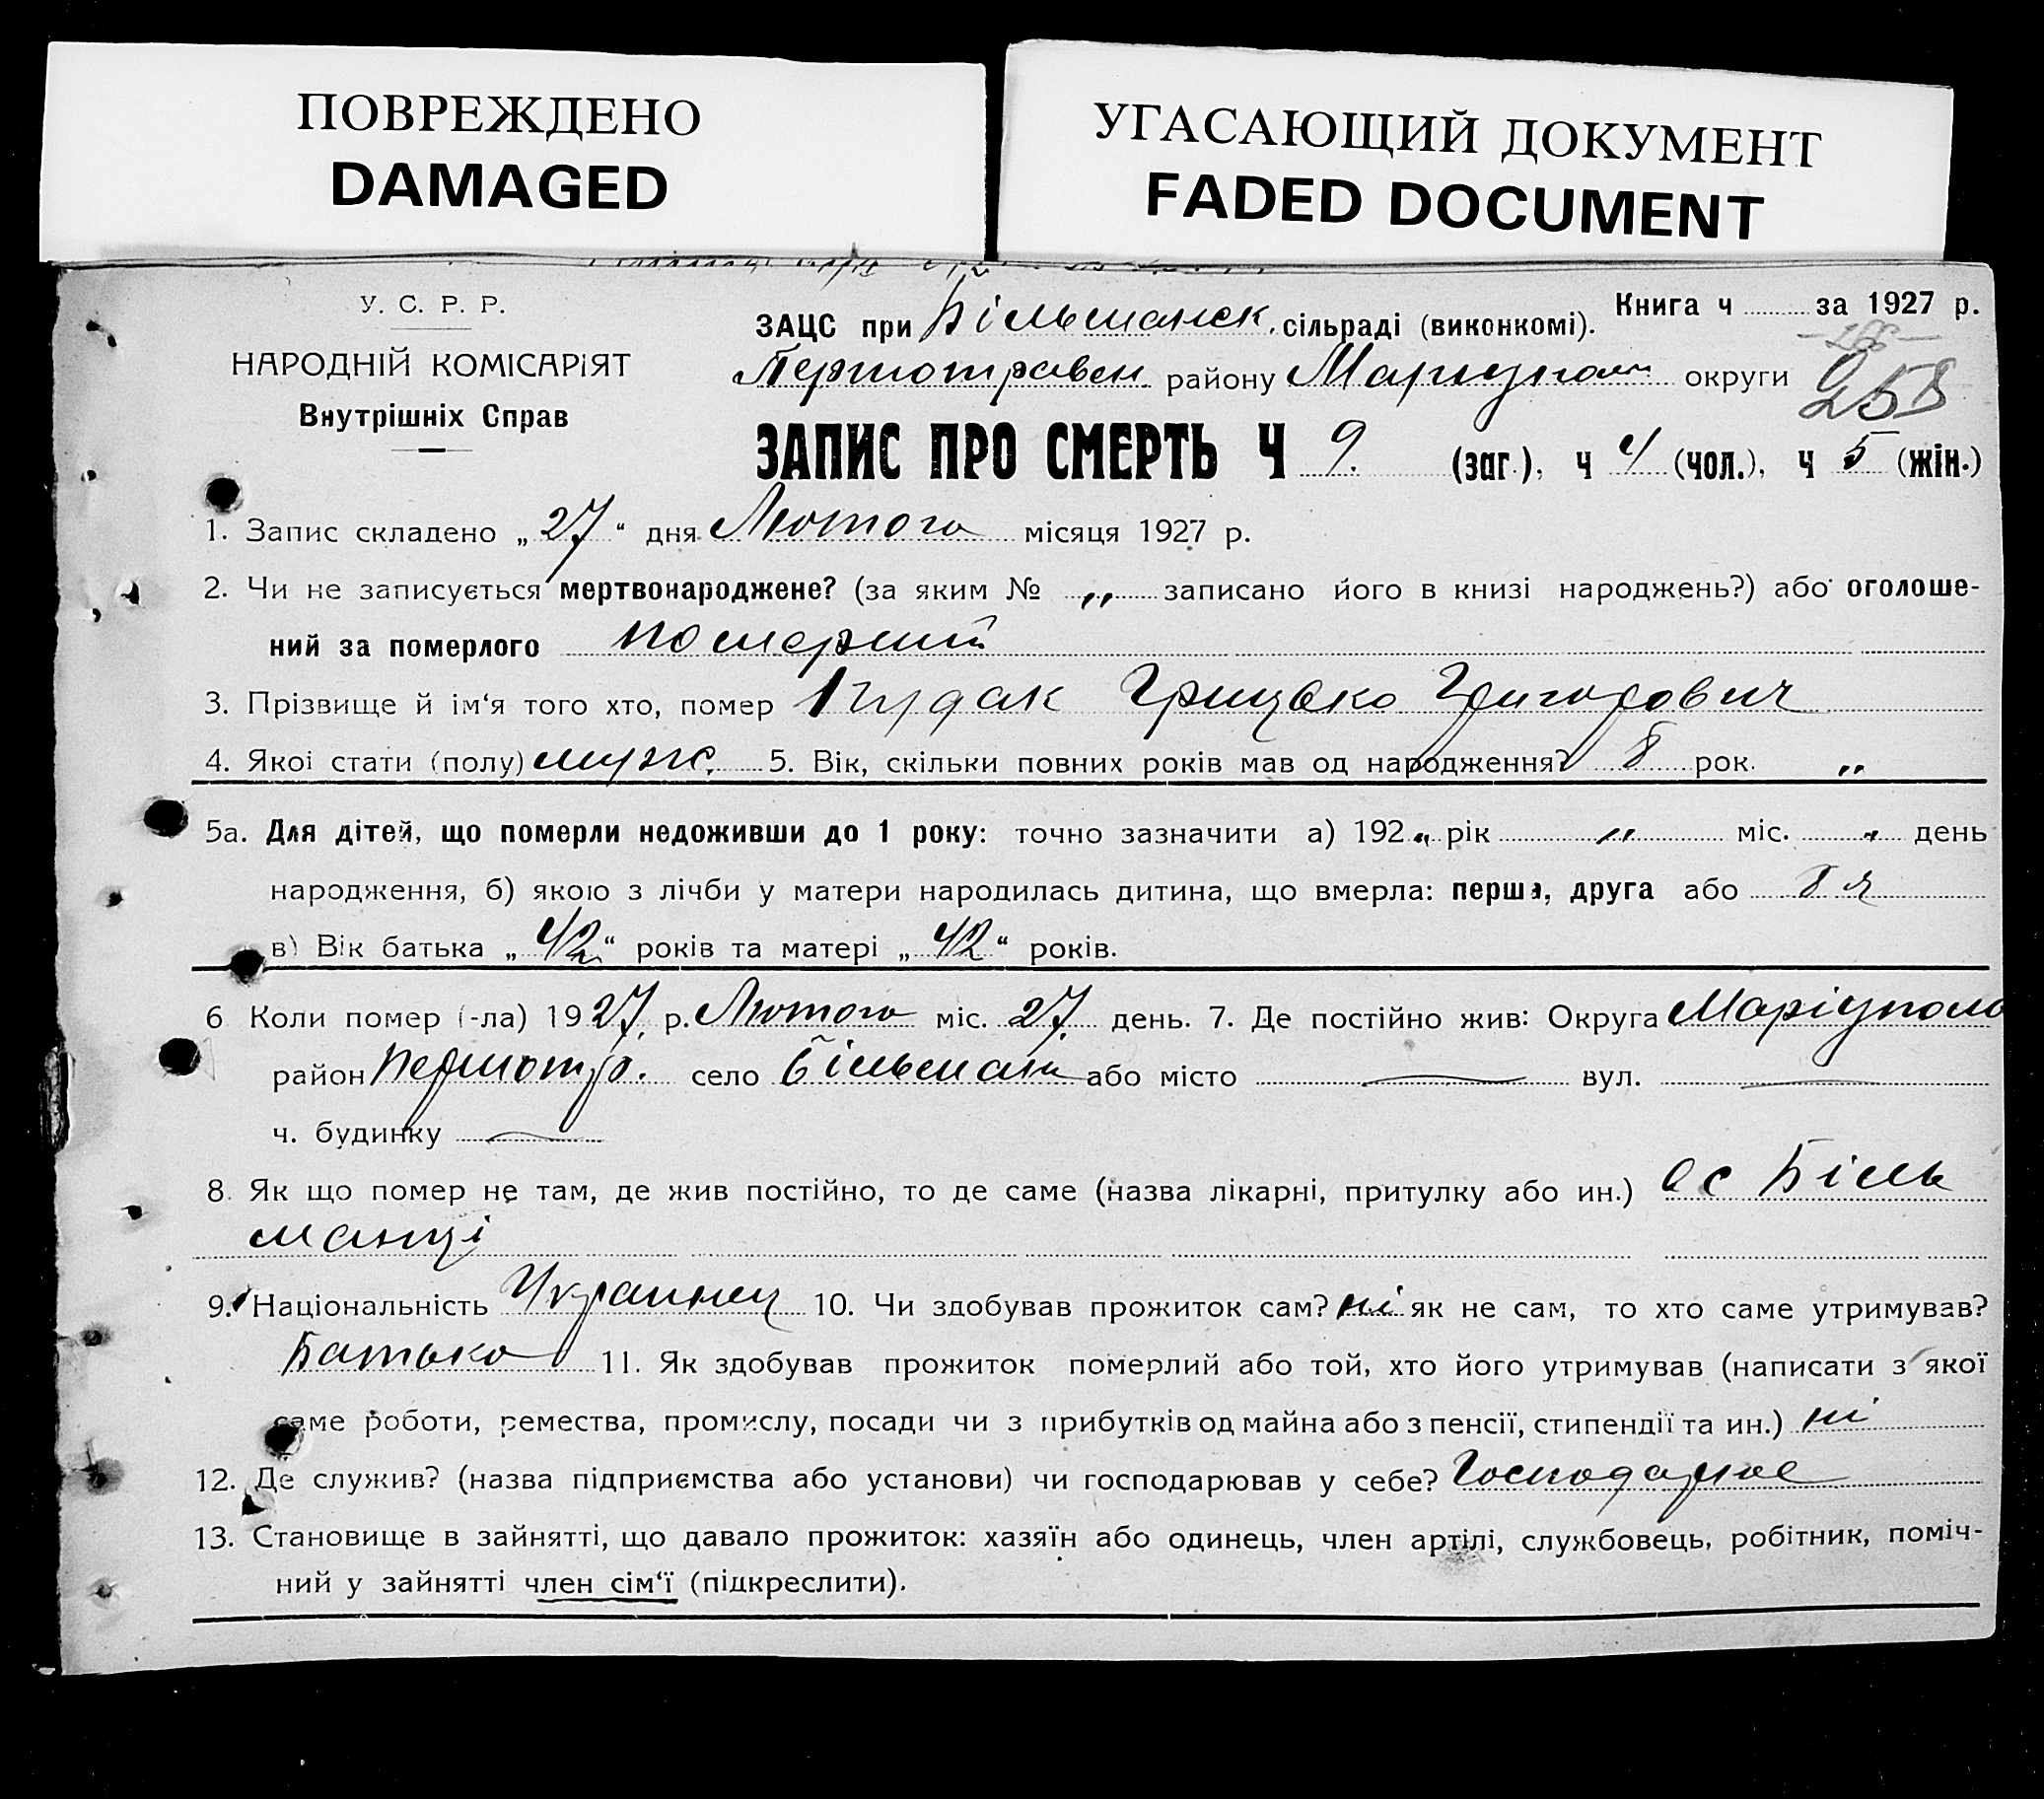 ПОВРЕЖДЕНО
DAMAGED
УГАСАЮЩИЙ ДОКУМЕНТ
FADED DOCUMENT
У. С. Р. Р.
НАРОДНІЙ КОМІСАРІЯТ
Внутрішніх Справ
Книга ч за 1927 р.
ЗАЦС при Більшанск. сільраді (виконкомі).
Першотравен. району Маріупол округи
258
ЗАПИС ПРО СМЕРТЬ Ч 9. (заг.), ч 4 (чол.), ч 5 (жін.)
1. Запис складено „27“ дня Лютого місяця 1927 р.
2. Чи не записується мертвонароджене? (за яким № „ записано його в книзі народжень?) або оголоше-
ний за померлого померший
3. Прізвище й ім‘я того хто, помер Грицько Григорович
4. Якої стати (полу) муж. 5. Вік, скільки повних років мав од народження? 8 рок. „
5а. Для дітей, що померли недоживши до 1 року: точно зазначити а) 192„ рік „ міс. „ день
народження, б) якою з лічби у матери народилась дитина, що вмерла: перша, друга або 8 я
в) Вік батька „42“ років та матері „42“ років.
6 Коли помер (-ла) 1927 р. Лютого міс. 27 день. 7. Де постійно жив: Округа Маріуполь
район Першотр. село Більманк або місто — вул. —
ч. будинку —
8. Як що помер не там, де жив постійно, то де саме (назва лікарні, притулку або ин.) с Біль
манці
9. Національність Украинец 10. Чи здобував прожиток сам? ні як не сам, то хто саме утримував?
Батько 11. Як здобував прожиток померлий або той, хто його утримував (написати з якої
саме роботи, ремества, промислу, посади чи з прибутків од майна або з пенсії, стипендії та ин.) ні
12. Де служив? (назва підприємства або установи) чи господарював у себе?
13. Становище в зайнятті, що давало прожиток: хазяїн або одинець, член артілі, службовець, робітник, поміч-
ний у зайнятті член сім‘ї (підкреслити).